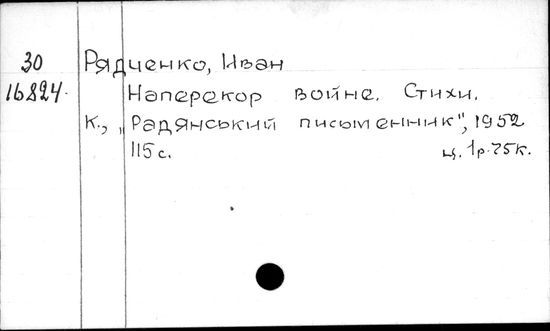 30 Рядченко, Иван
16824. Наперекор войне. Стихи.
К., „Радянський письменник", 1952
115 с. ц. 1р. 75к.